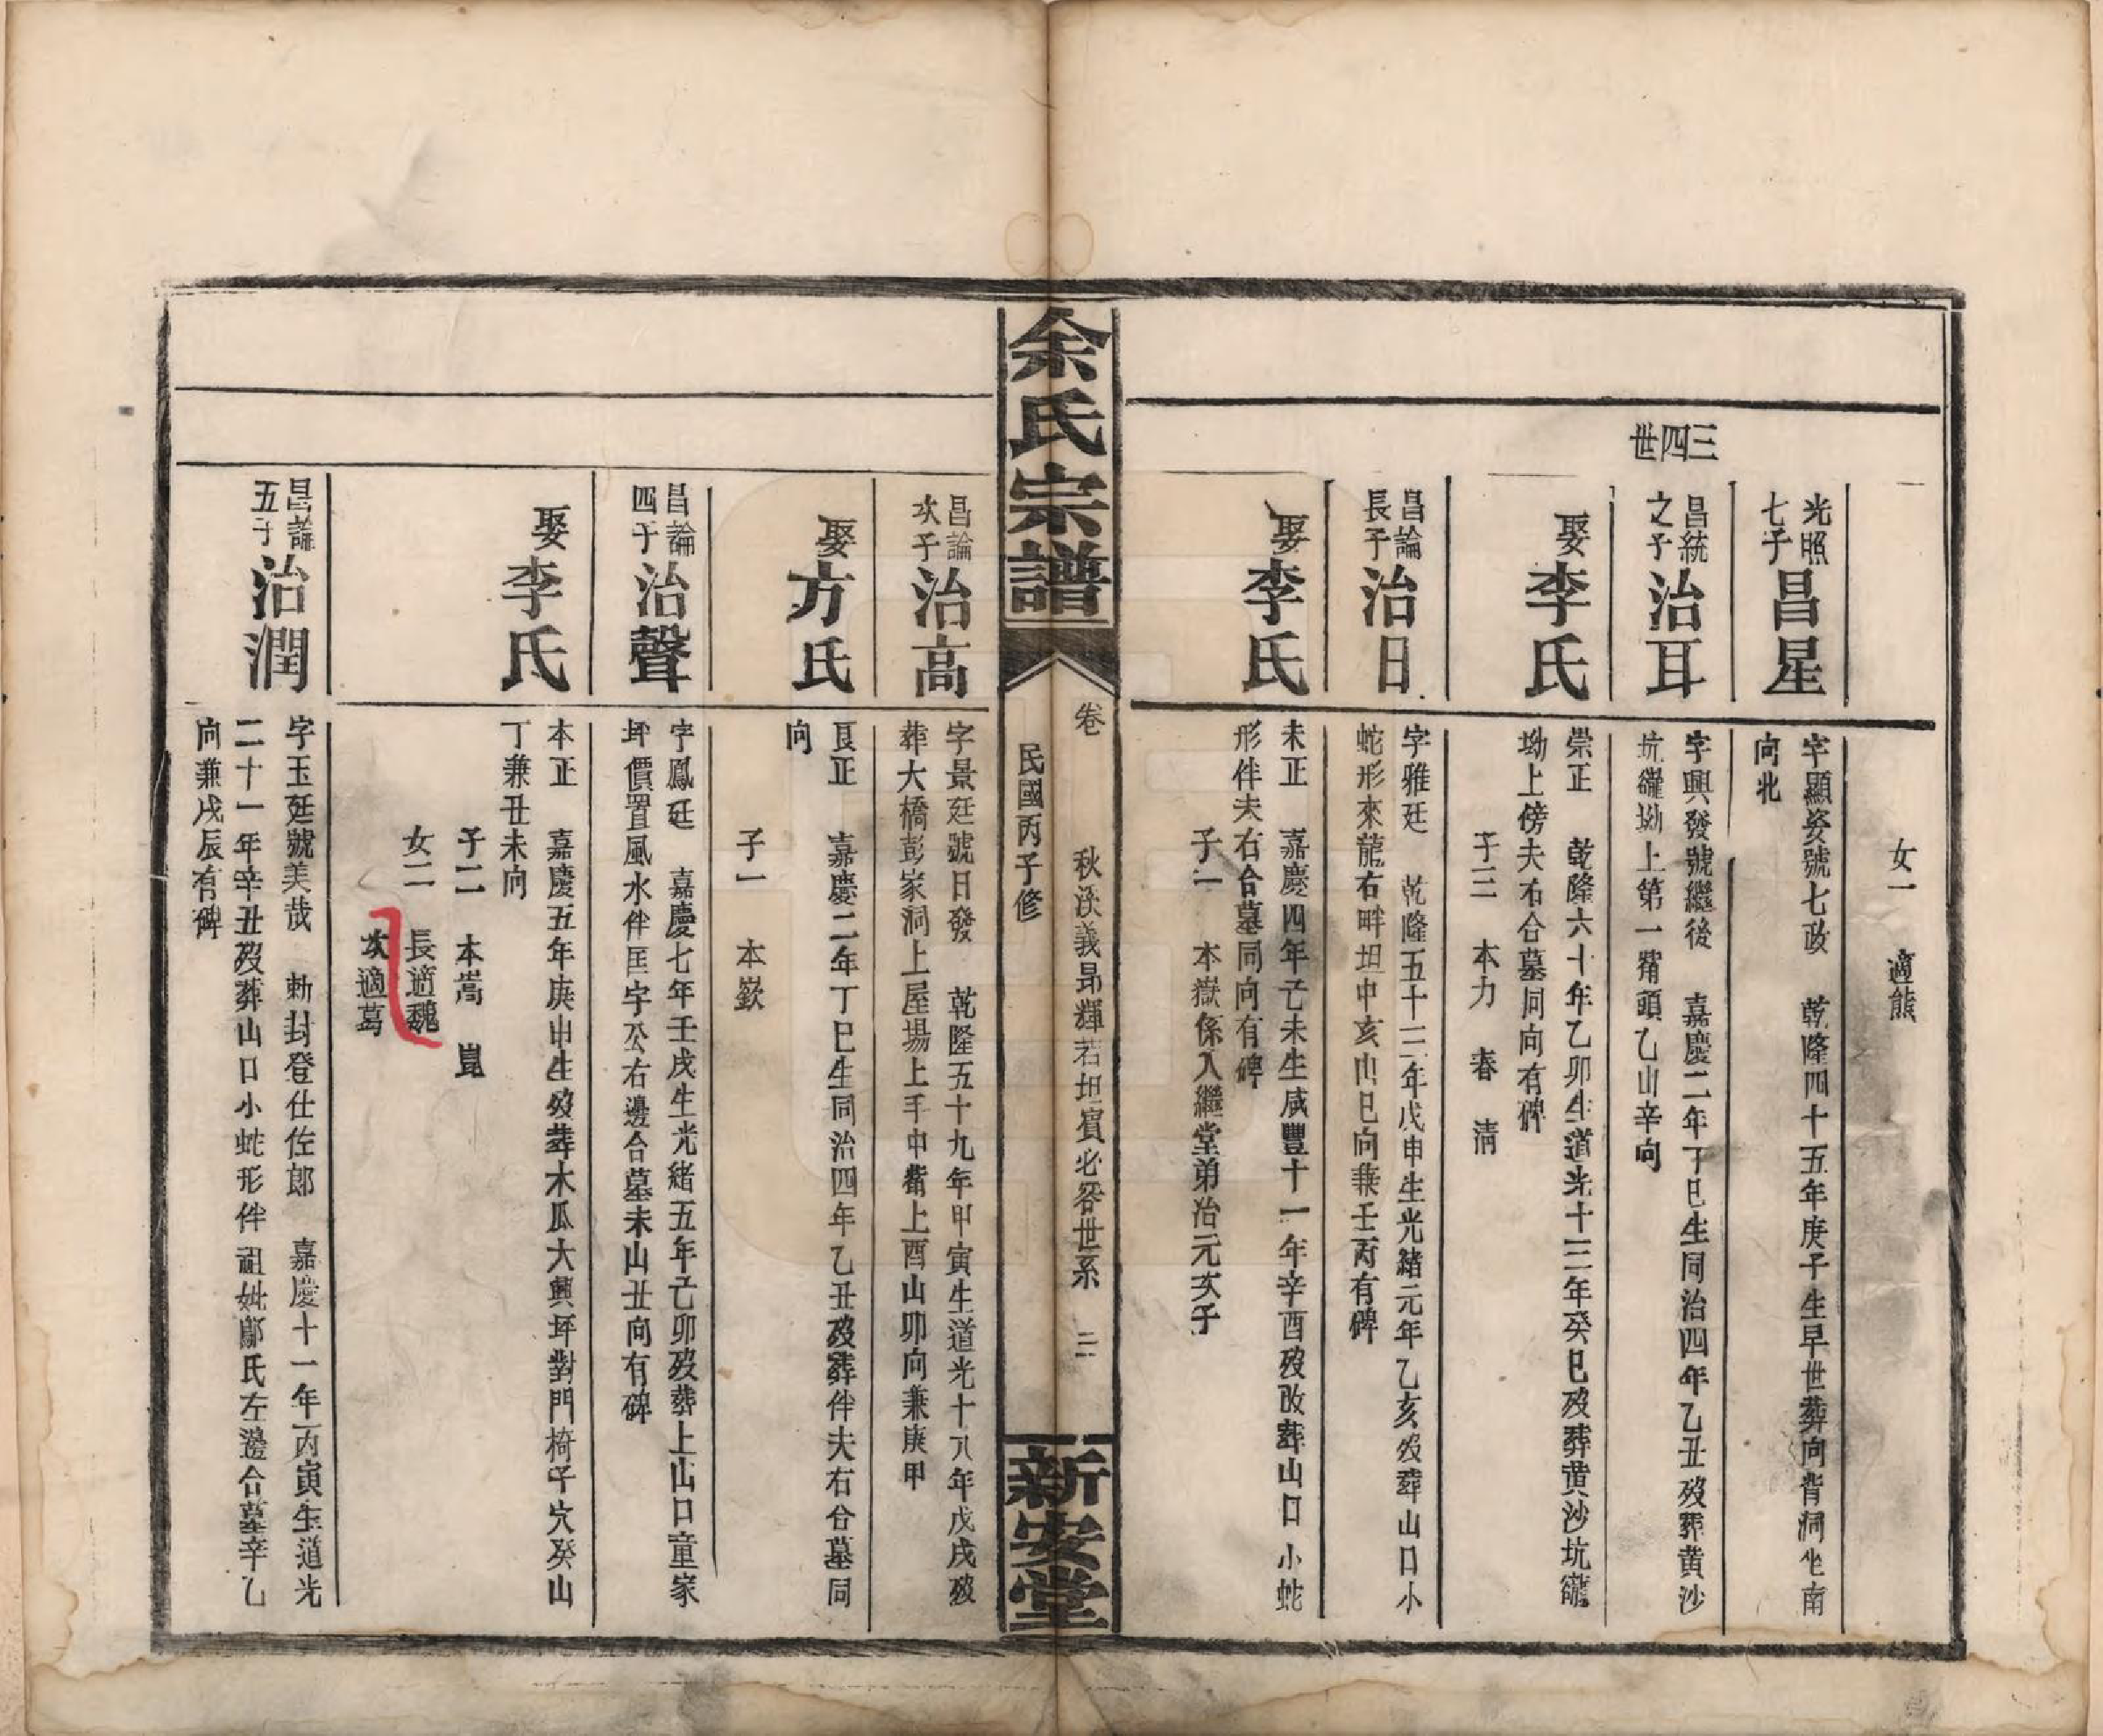 女一 適熊
光照
七子
昌星
字顯姿號七政 乾隆四十五年庚子生早世葬向背洞坐南
向北
三四世
昌統
之子
治耳
字興發號繼後 嘉慶二年丁巳生同治四年乙丑歿葬黃沙
坑 坳上第一 頭乙山辛向
娶李氏
崇正 乾隆六十年乙卯生道光十三年癸巳歿葬黃沙坑
坳上傍夫右合墓同向有碑
子三 本力 春 清
昌論
長子
治日
字雅廷 乾隆五十三年戊申生光緒元年乙亥歿葬山口小
蛇形來龍右畔坦中亥山巳向兼壬丙有碑
娶李氏
未正 嘉慶四年己未生咸豐十一年辛酉歿改葬山口小蛇
形伴夫右合墓同向有碑
子一 本嶽係入繼堂弟治元次子
余氏宗譜
卷 秋溪義昴輝若坦賓必容世系 二
民國丙子修
新安堂
昌論
次子
治高
字景廷號日發 乾隆五十九年甲寅生道光十八年戊戌歿
葬大橋彭家洞上屋場上手中 上酉山卯向兼庚甲
娶方氏
艮正 嘉慶二年丁巳生同治四年乙丑歿葬伴夫右合墓同
向
子一 本嶔
昌論
四子
治聲
字鳳廷 嘉慶七年壬戌生光緒五年己卯歿葬上山口童家
坪價置風水伴匡字公右邊合墓未山丑向有碑
娶李氏
本正 嘉慶五年庚申生歿葬木瓜大興坪對門椅子穴癸山
丁兼丑未向
子二 本嵩 崑
女二 長適魏
次適葛
昌論
五子
治潤
字玉廷號美哉 勅封登仕佐郎 嘉慶十一年丙寅生道光
二十一年辛丑歿葬山口小蛇形伴祖妣鄺氏左邊合墓辛乙
向兼戌辰有碑